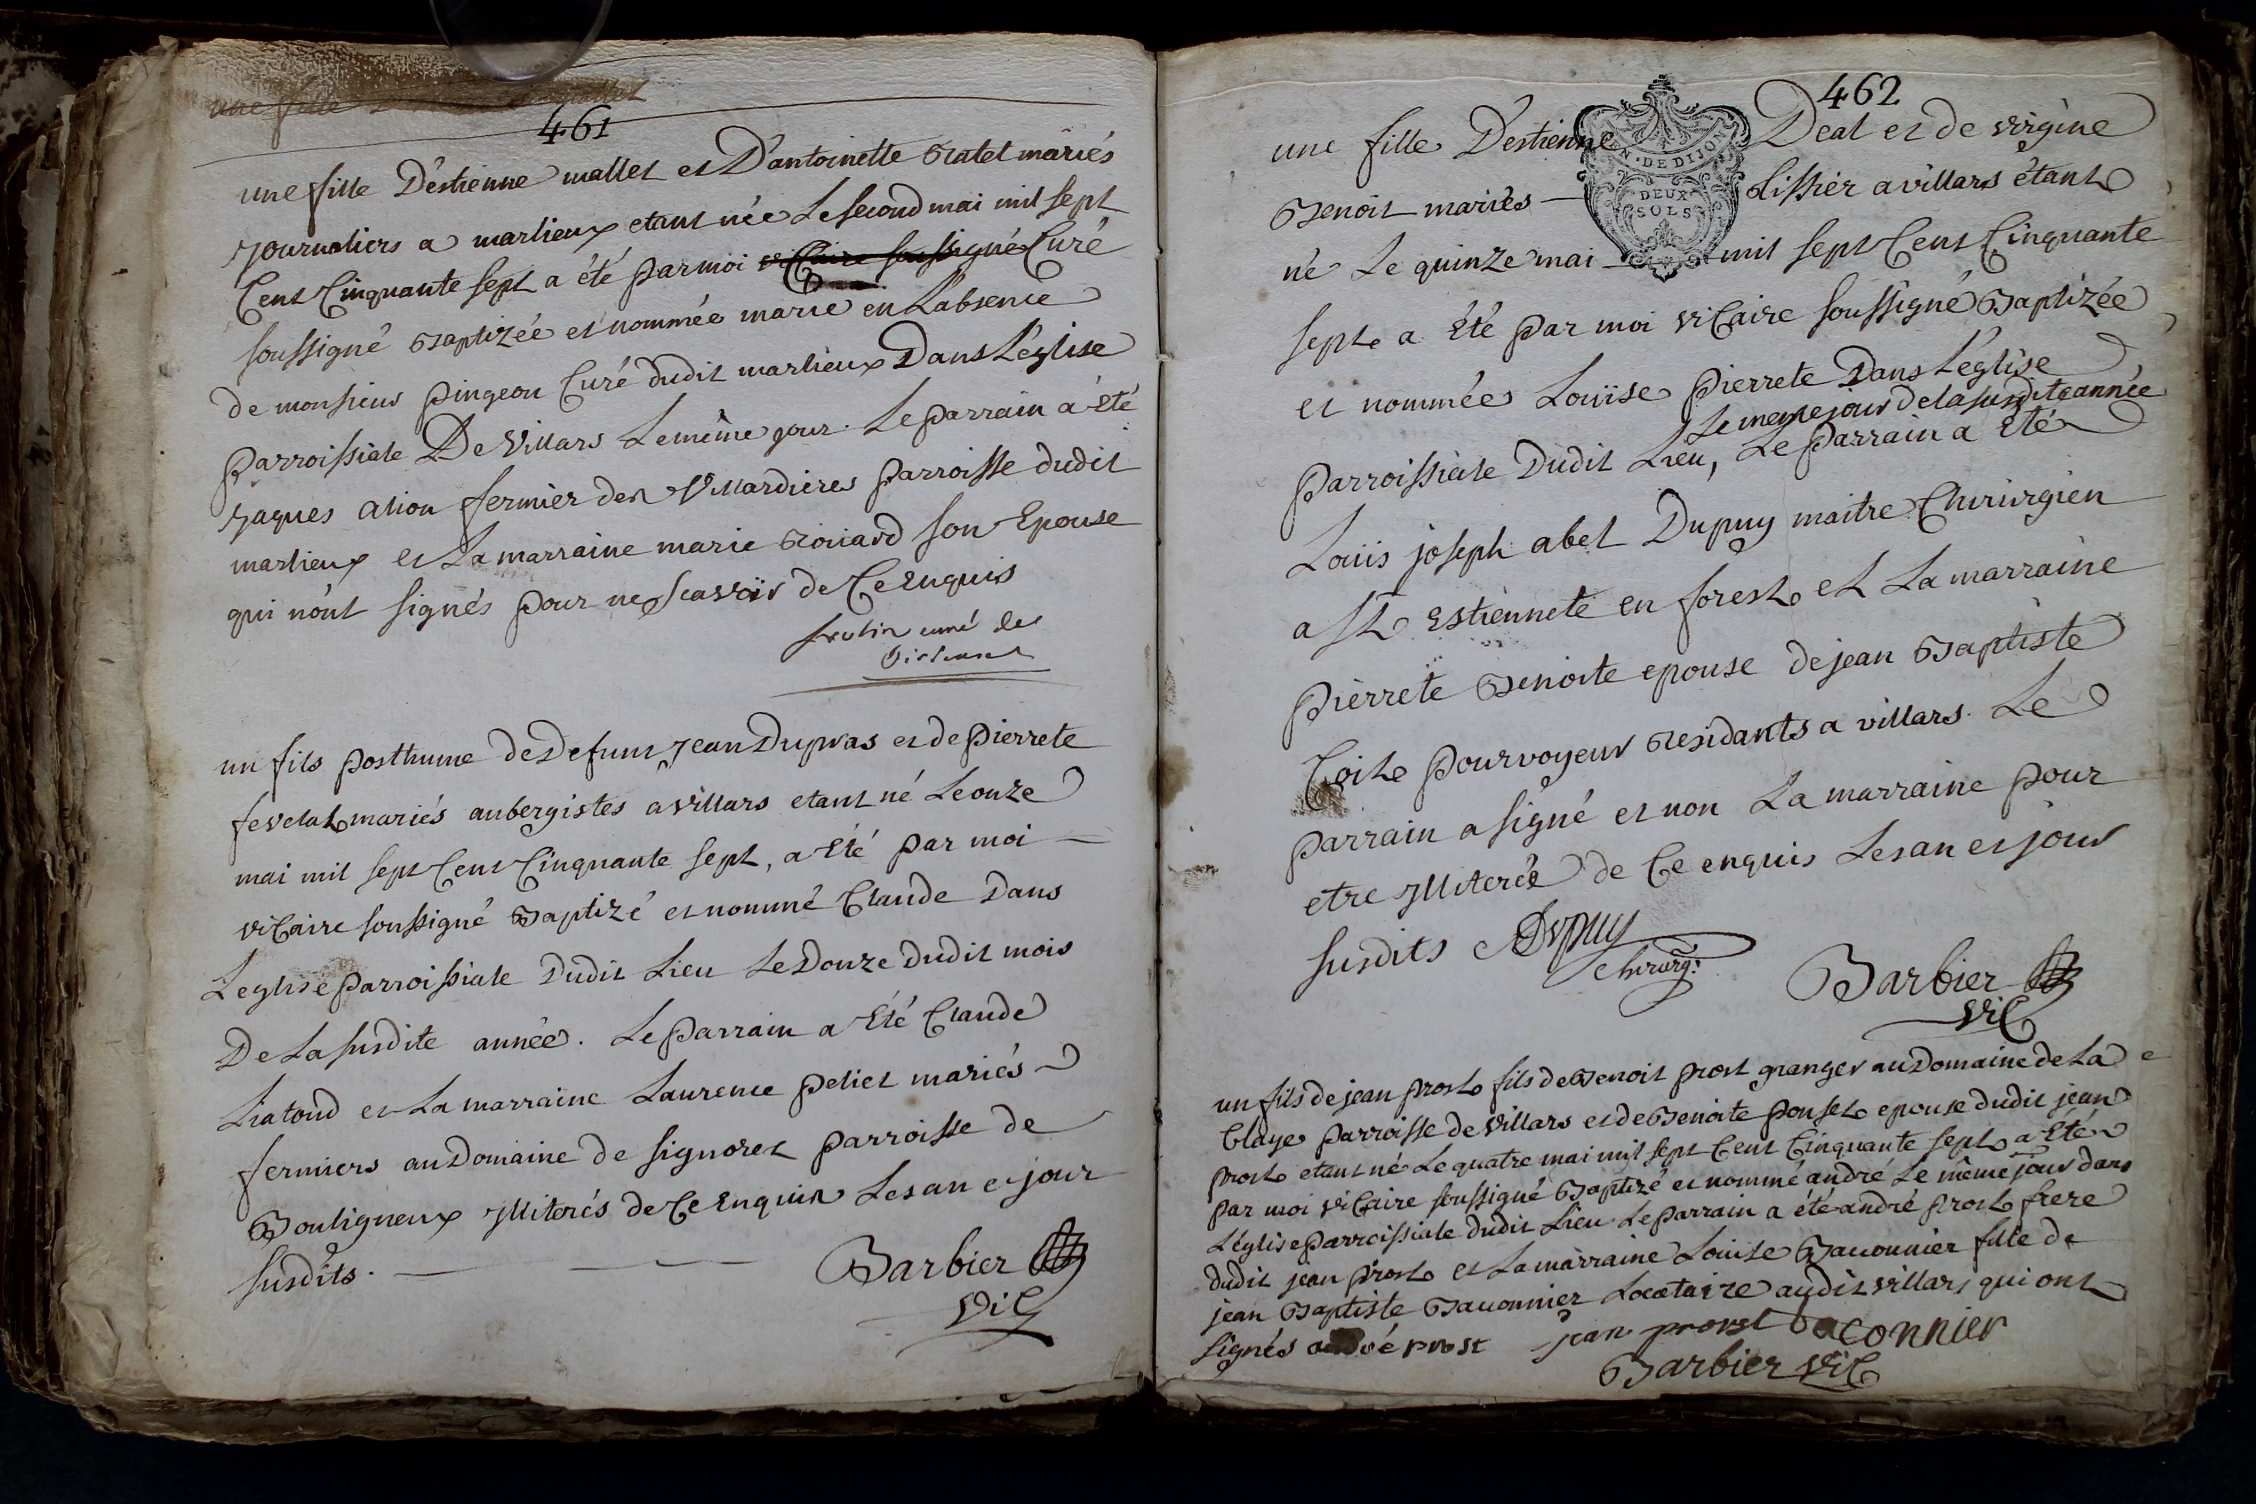 une fille
461
une fille D'estienne mallet et D'antoinette Ratel mariés
journaliers a marlieux etant née Le second mai mil sept
Cent Cinquante sept a été par moi viCaire soussigné Curé
soussigné Baptizée et nommée marie en L'absence
de monsieur pingeon Curé dudit marlieux Dans L'église
parroissiale De Villars Le même jour. Le parrain a été
jaques alion fermier des Villardieres parroisse dudit
marlieux et La marraine marie Roüard son Epouse
qui n'ont signés pour ne sçavoir de Ce Enquis
curé de
un fils posthume de Defunt jean Dupras et de pierrete
fevelat mariés aubergistes a villars etant né Le onze
mai mil sept Cent Cinquante sept, a Eté par moi
viCaire soussigné Baptizé et nommé Claude Dans
L'eglise parroissiale Dudit Lieu Le Douze dudit mois
De La susdite année. Le parrain a Eté Claude
Liatoud et La marraine Laurence peliet mariés
fermiers au Domaine de signoret parroisse de
Bouligneux jlliterés de Ce Enquis Les an et jour
susdits.
Barbier
ViC
462
une fille D'estienne Deal et de virgine
EN. DE DIJON
Benoit mariés tissier a villars étant
DEUX
SOLS
né Le quinze mai mil sept Cent Cinquante
sept a Eté par moi viCaire soussigné Baptizée
et nommée Loüise pierrete Dans L'église
Le meme jour de la susdite année
parroissiale Dudit Lieu, Le parrain a Eté
Loüis joseph abel Dupuy maitre Chirurgien
a St Estiennete en forest et La marraine
pierrete Benoite epouse de jean Baptiste
Coite pourvoyeur Residants a villars. Le
parrain a signé et non La marraine pour
etre jlliterée de Ce enquis Les an et jour
susdits Dupuy
chirurg:
Barbier
ViC
un fils de jean prost fils de Benoit prost granger au Domaine de La
Claye parroisse de villars et de Benoite ponset epouse dudit jean
prost etant né Le quatre mai mil sept Cent Cinquante sept a Eté
par moi viCaire soussigné Baptizé et nommé andré Le même jour dans
L'église parroissiale dudit Lieu Le parrain a été andré prost frere
dudit jean prost et La marraine Louise Baconnier fille de
jean Baptiste Baconnier Locataire audit villars qui ont
signés andré prost jean provst Baconnier
Barbier ViC